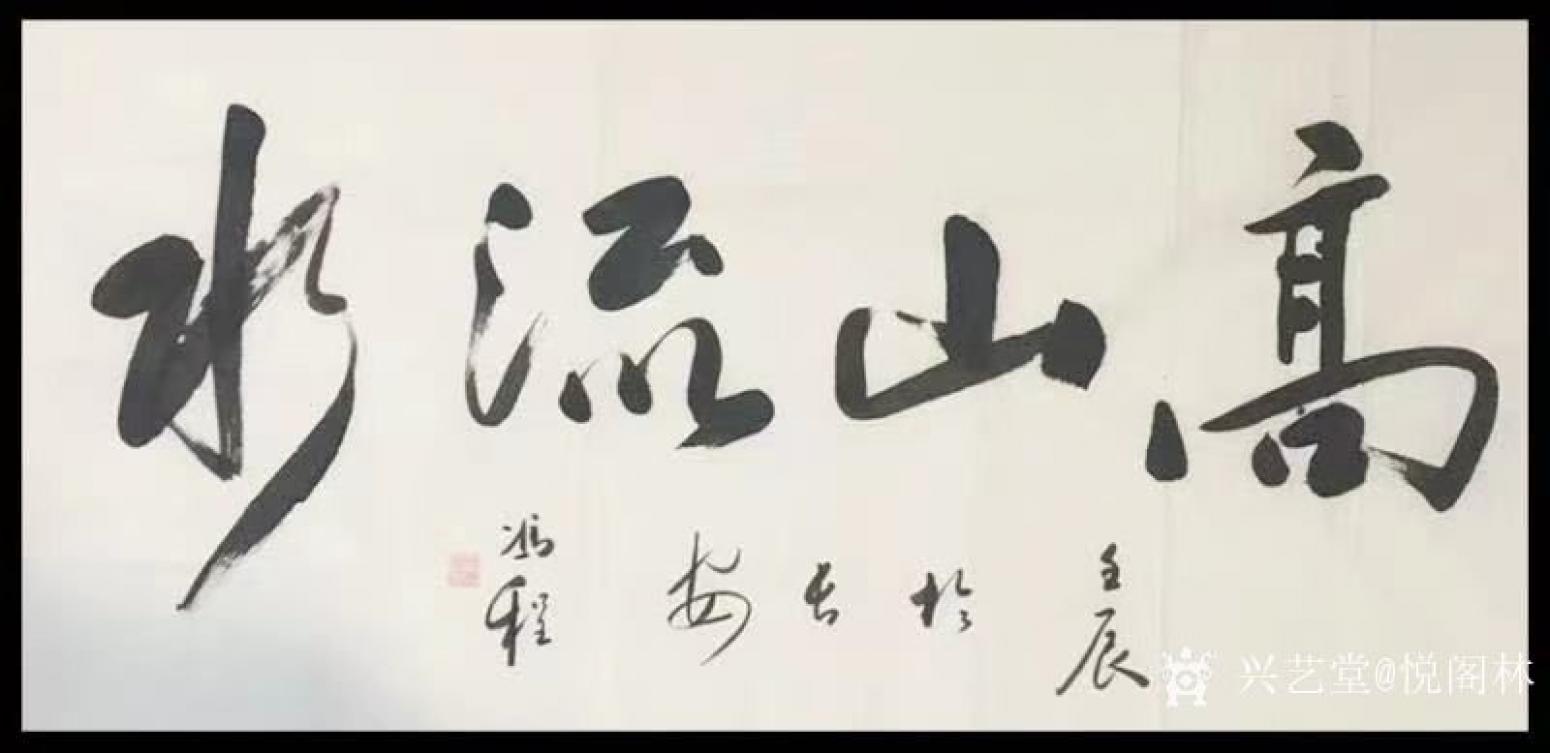 高山流水
壬辰
於長安
冯程
兴艺堂@悦阁林